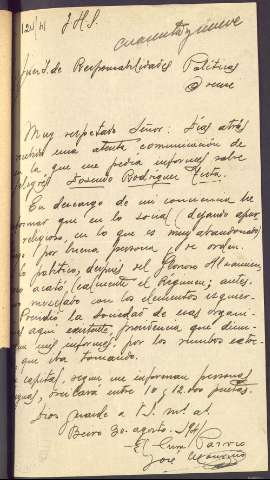 J.H.S.
cuarenta y nueve
Juez I. de Responsabilidades Políticas
Orense
Muy respetado Señor: Días atrás
recibido una atenta comunicación de
en la que me pedía informes sobre
Rosendo Rodríguez
En descargo de mi conciencia he
formar que en lo social (dejando apar
religioso, en lo que es muy abandonado)
por buena persona y de orden.
lo político, después del Glorioso Alzamien
acató, realmente el Regimen; antes
mezclado con los elementos izquier
Presidió la Sociedad de esas organi
aquí existente, presidencia que dimi
mis informes, por los rumbos extre
que iba tomando.
capital, según me informan personas
oscilará entre 10 y 12.000 pesetas.
Dios guarde a V.S. m. a.
Beiro 30. agosto. 1941
El Cura Párroco
José